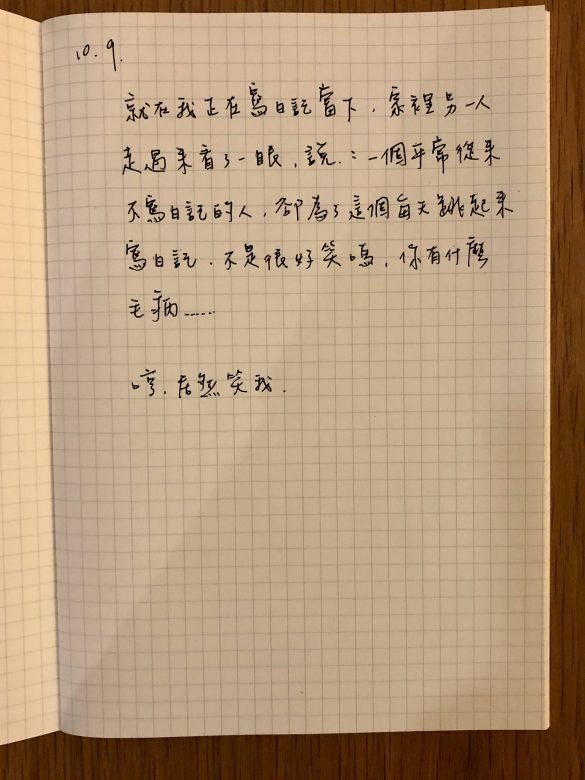 10.9.
就在我正在寫日記當下，家裡另一人
走過來看了一眼，說：一個平常從來
不寫日記的人，卻為了這個每天跳起來
寫日記，不是很好笑嗎，你有什麼
毛病……
哼，居然笑我.